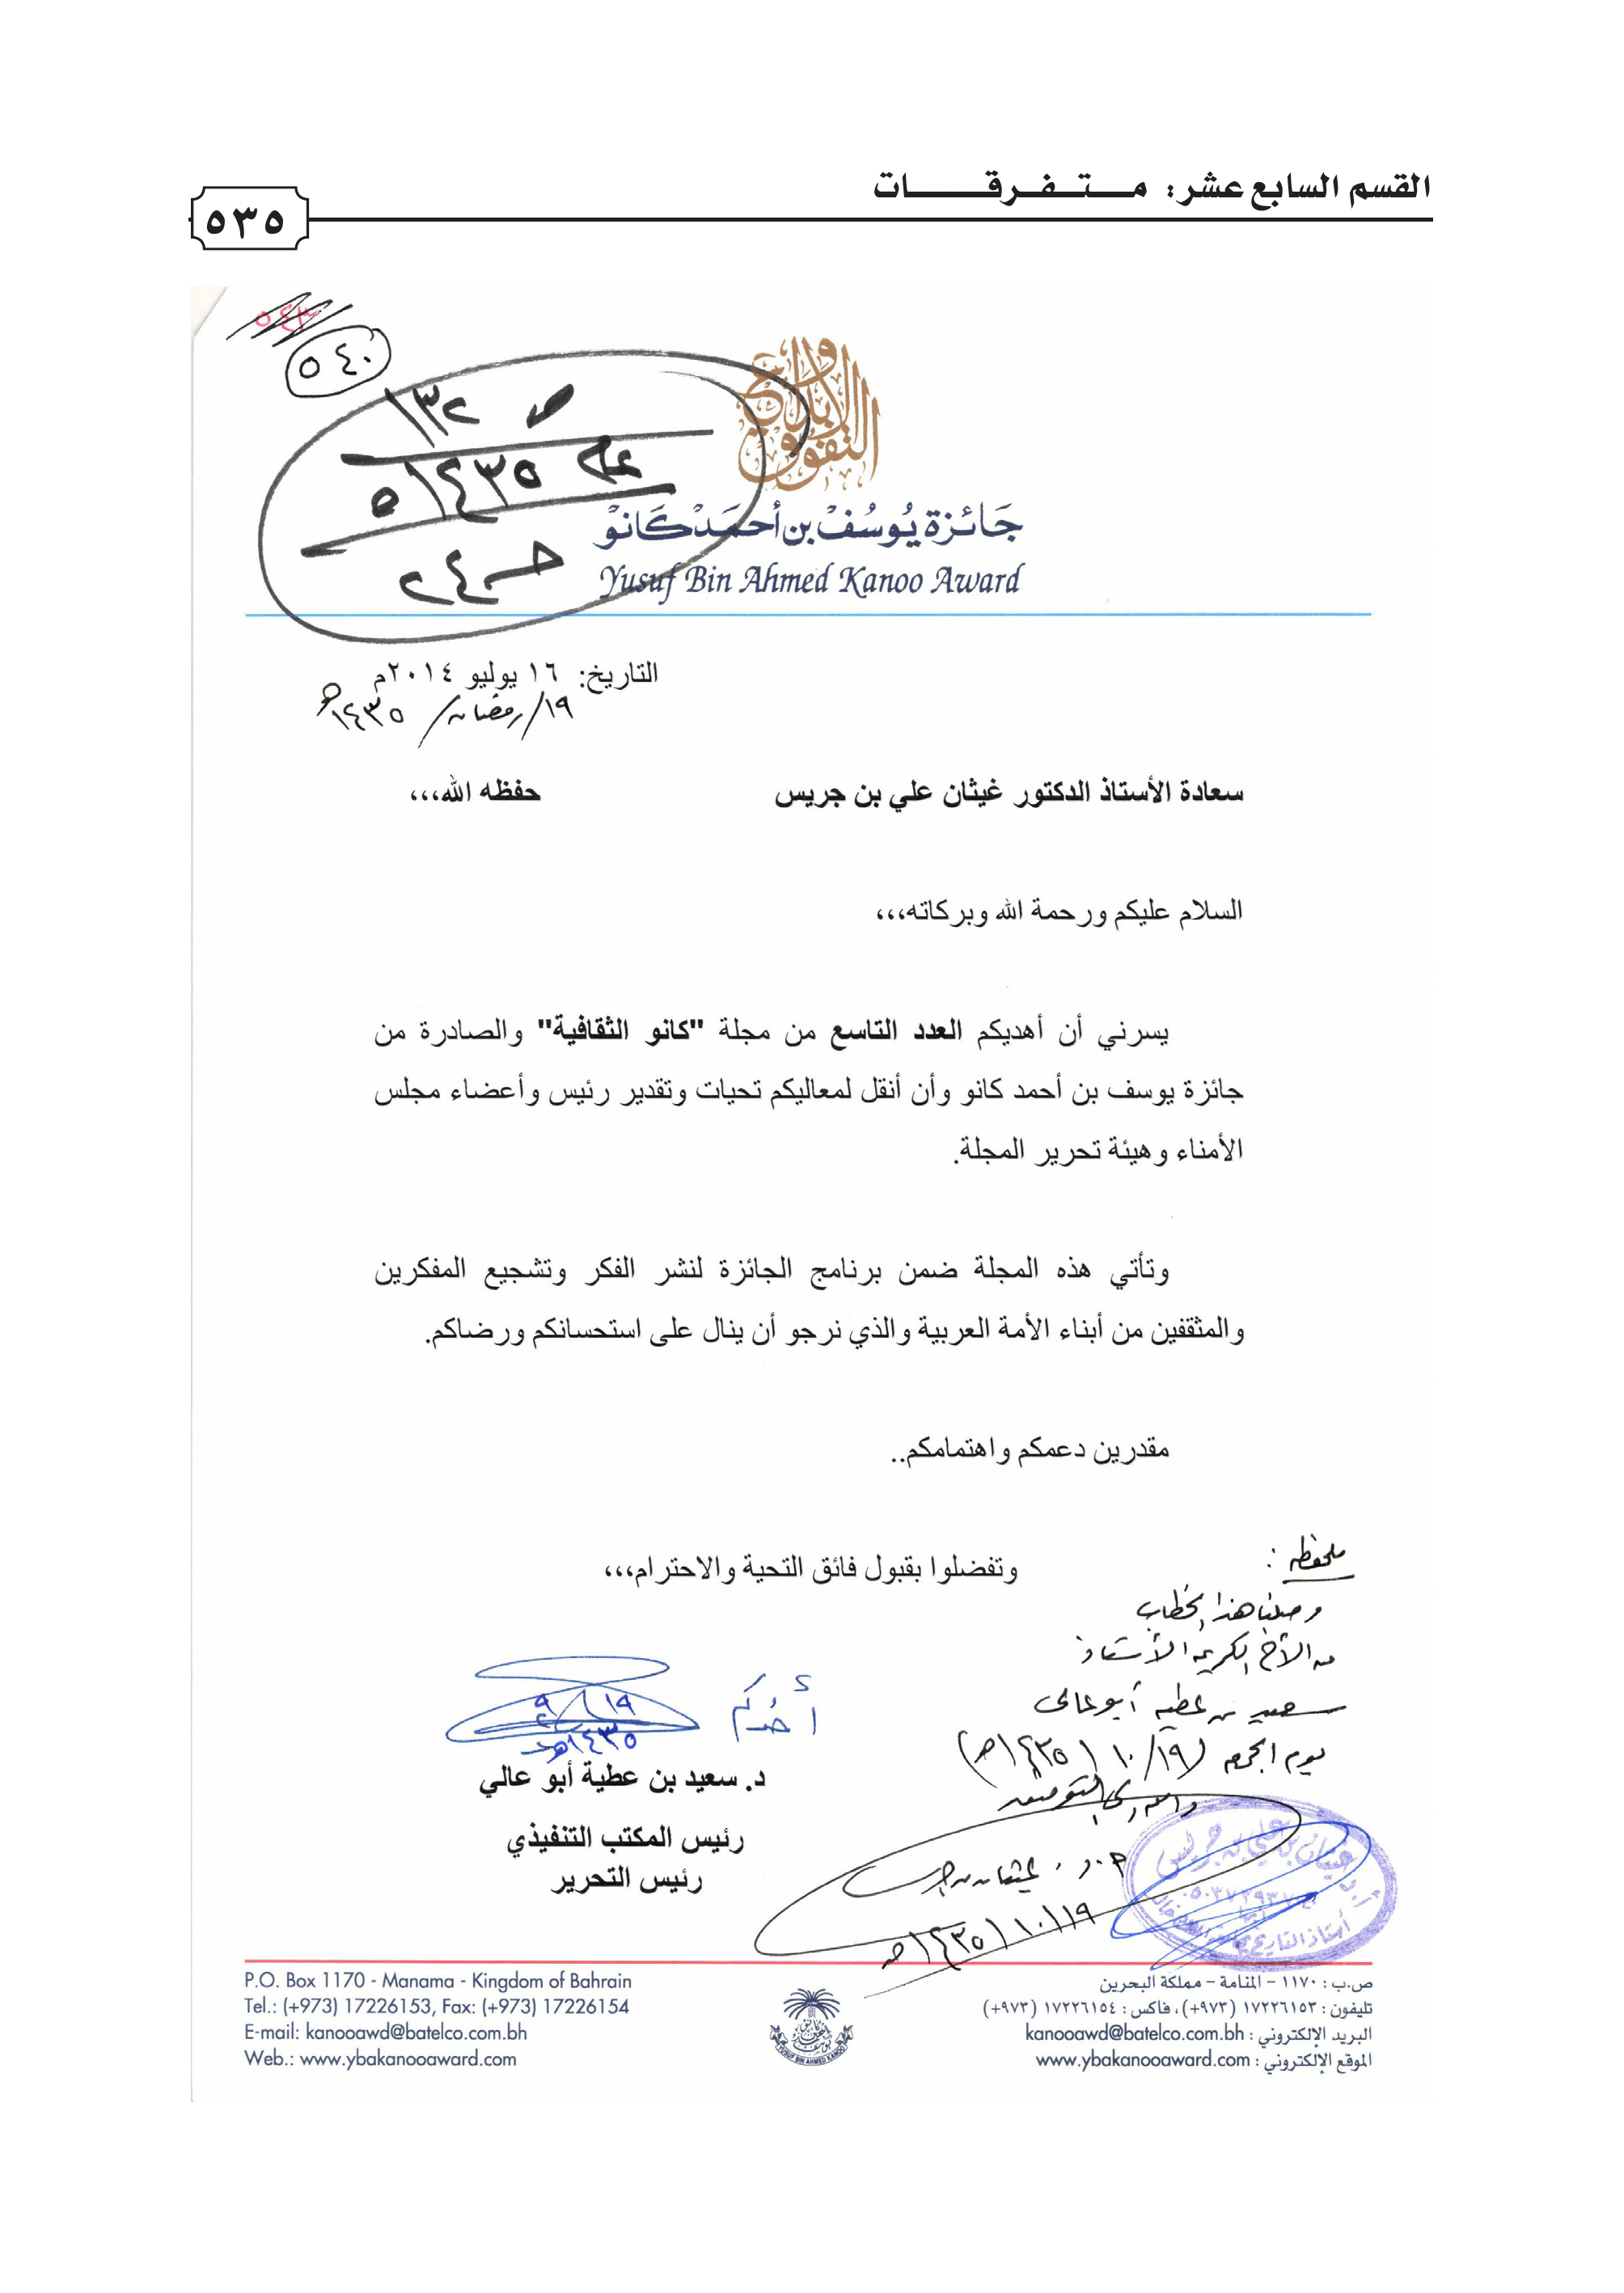 القسم السابع عشر: متفرقات
٥٣٥
٥٤٣
٥٤٠
ص ١٣٢
١٤٣٥
٢٤
التفوق والإبداع
جائزة يوسف بن أحمد كانو
Yusuf Bin Ahmed Kanoo Award
التاريخ: ١٦ يوليو ٢٠١٤م
١٩/رمضان/١٤٣٥هـ
سعادة الأستاذ الدكتور غيثان علي بن جريس حفظه الله،،،
السلام عليكم ورحمة الله وبركاته،،،
يسرني أن أهديكم العدد التاسع من مجلة "كانو الثقافية" والصادرة من
جائزة يوسف بن أحمد كانو وأن أنقل لمعاليكم تحيات وتقدير رئيس وأعضاء مجلس
الأمناء وهيئة تحرير المجلة.
وتأتي هذه المجلة ضمن برنامج الجائزة لنشر الفكر وتشجيع المفكرين
والمثقفين من أبناء الأمة العربية والذي نرجو أن ينال على استحسانكم ورضاكم.
مقدرين دعمكم واهتمامكم..
وتفضلوا بقبول فائق التحية والاحترام،،،
أخوكم
١٩/٩
١٤٣٥هـ
د. سعيد بن عطية أبو عالي
رئيس المكتب التنفيذي
رئيس التحرير
ملحظه :
وصلنا هذا الخطاب
من الأخ الكريم الأستاذ
سعيد بن عطيه أبو عالى
يوم الجمعه (١٩/١٠/١٤٣٥هـ)
والله ولي التوفيق
غيثان بن جريس
١٩/١٠/١٤٣٥هـ
أ.د. غيثان بن علي بن جريس
أستاذ التاريخ
P.O. Box 1170 - Manama - Kingdom of Bahrain
Tel.: (+973) 17226153, Fax: (+973) 17226154
E-mail: kanooawd@batelco.com.bh
Web.: www.ybakanooaward.com
YUSUF BIN AHMED KANOO
ص.ب : ١١٧٠ – المنامة – مملكة البحرين
تليفون : ١٧٢٢٦١٥٣ (٩٧٣+)، فاكس : ١٧٢٢٦١٥٤ (٩٧٣+)
البريد الإلكتروني : kanooawd@batelco.com.bh
الموقع الإلكتروني : www.ybakanooaward.com